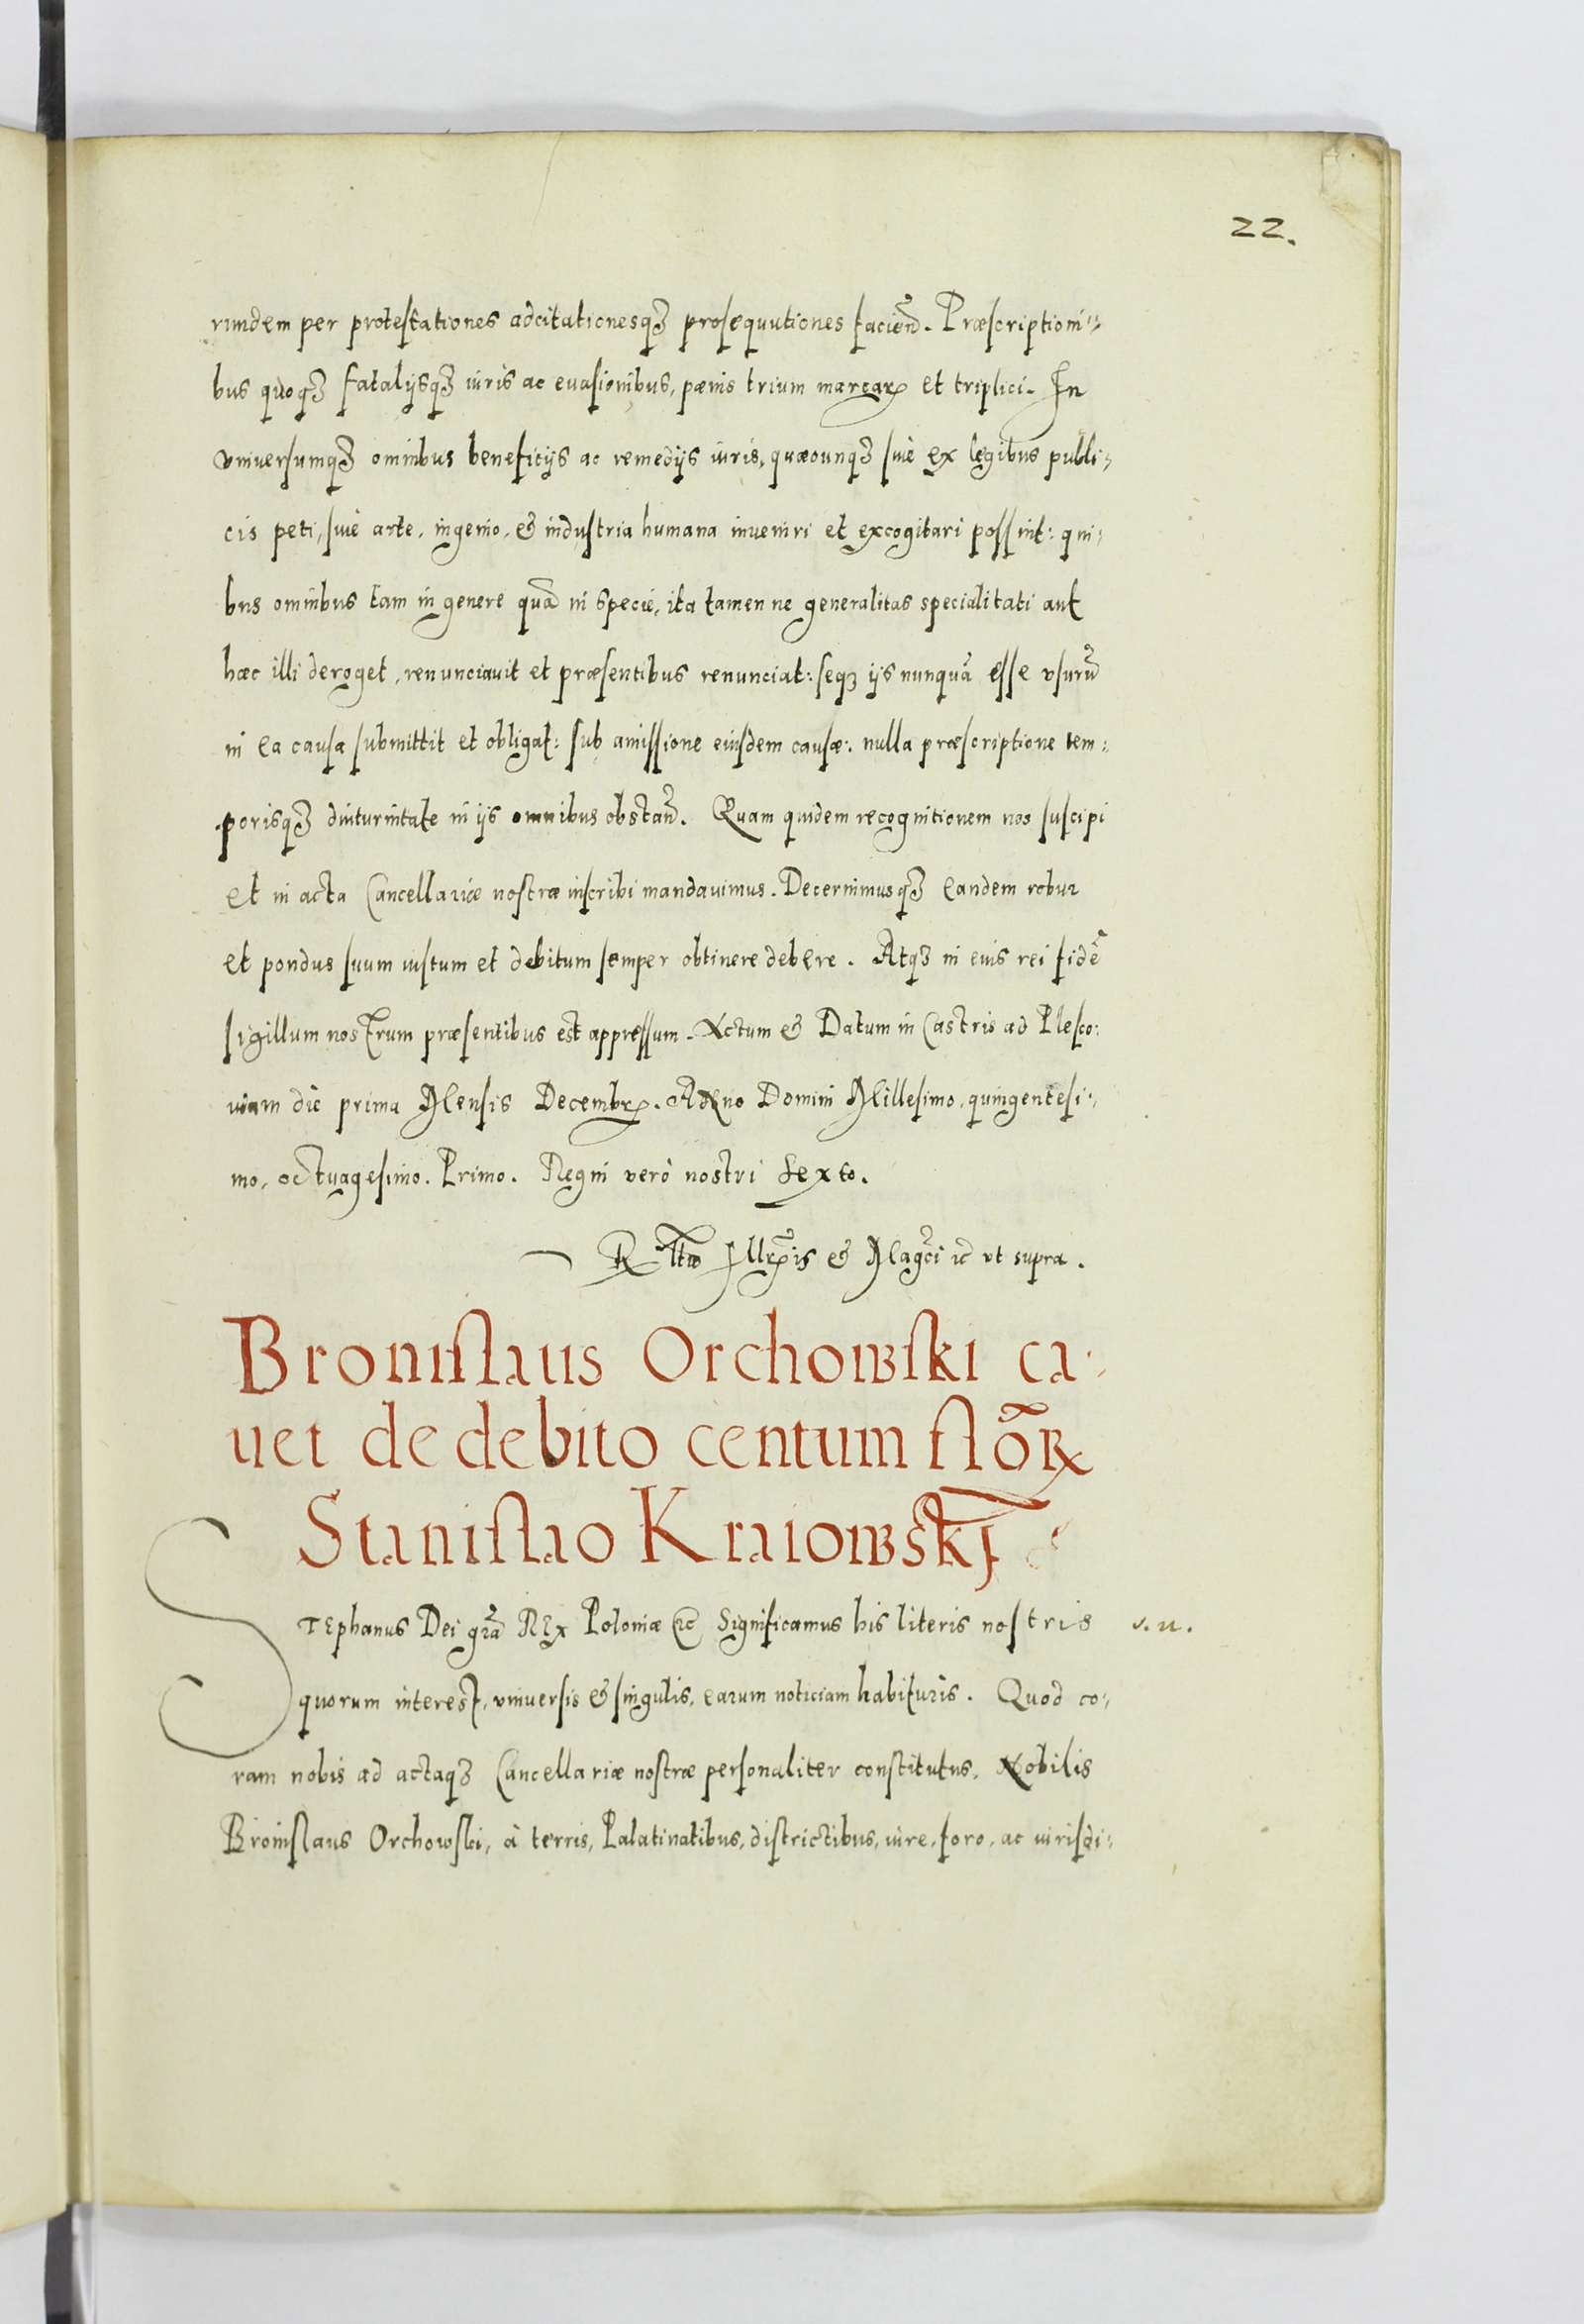 22.
rundem per protestationes adcitationesqȝ prosequutiones faciend̃. Præscriptioni=
bus quoqȝ fatalijsqȝ iuris ac euasionibus, pœnis trium marcarꝝ et triplici. In
vniuersumqȝ omnibus beneficijs ac remedijs iuris, quæcunqȝ siue ex legibus publi=
cis peti, siue arte, ingenio, & industria humana inueniri et excogitari possint: qui=
bus omnibus tam in genere quã in specie, ita tamen ne generalitas specialitati aut
hæc illi deroget, renunciauit et præsentibus renunciat: seqȝ ijs nunquã esse vsurũ
in ea causa submittit et obligat: sub amissione eiusdem causæ: nulla præscriptione tem=
porisqȝ diuturnitate in ijs omnibus obstañ. Quam quidem recognitionem nos suscipi
et in acta Cancellariæ nostræ inscribi mandauimus. Decernimusqȝ eandem robur
et pondus suum iustum et debitum semper obtinere debere. Atqȝ in eius rei fidẽ
sigillum nostrum præsentibus est appressum. Actum & Datum in Castris ad Plesco=
uiam die prima Mensis Decembrꝭ. Anno Domini Millesimo, quingentesi=
mo, octuagesimo. Primo. Regni verò nostri Sexto.
Rltio Illrꝭis & Magci ꝛc vt supra.
Bronislaus Orchowski ca=
uet de debito centum flõrꝝ
Stanislao Kraiowskj
Stephanus Dei grã Rex Poloniæ ꝛc Significamus his literis nostris v. u.
quorum interest, vniuersis & singulis, earum noticiam habituris. Quod co=
ram nobis ad actaqȝ Cancellariæ nostræ personaliter constitutus, Nobilis
Bronislaus Orchowski, à terris, Palatinatibus, districtibus, iure, foro, ac iurisdi=